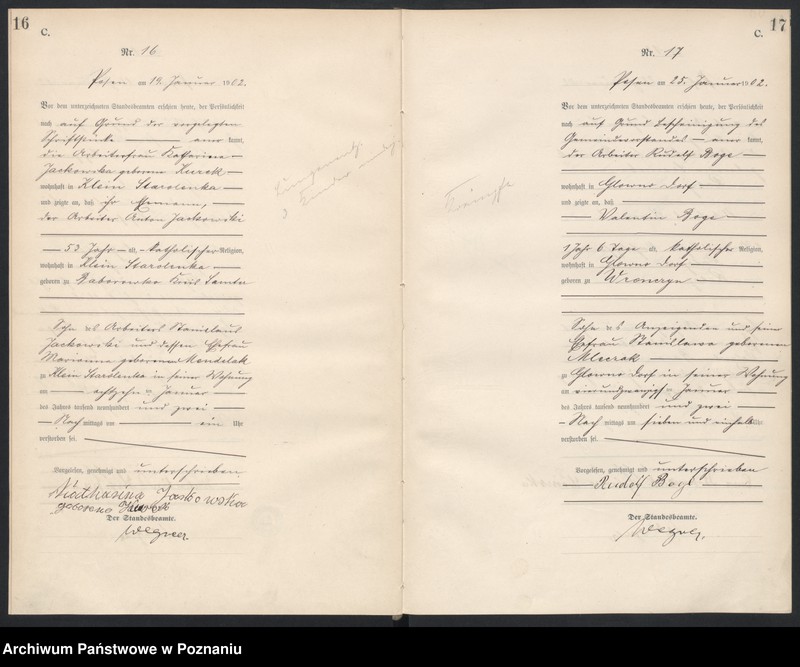 16
C.
Nr. 16
Posen am 19. Januar 1902.
Vor dem unterzeichneten Standesbeamten erschien heute, der Persönlichkeit
nach auf Grund der vorgelegten
Schriftstücke — anerkannt,
die Arbeiterfrau Katharina
Jackowska geborene Kurek
wohnhaft in Klein Starolenka
und zeigte an, daß ihr Ehemann,
der Arbeiter Anton Jackowski
53 Jahr alt, katholischer Religion,
wohnhaft in Klein Starolenka
geboren zu Daborowko Kreis Samter
Sohn des Arbeiters Stanislaus
Jackowski und dessen Ehefrau
Marianna geborenen Mendelak
zu Klein Starolenka in seiner Wohnung
am achtzehnten Januar
des Jahres tausend neunhundert und zwei
Nachmittags um ein Uhr
verstorben sei.
Vorgelesen, genehmigt und unterschrieben
Katharina Jackowska
geborene Kurek
Der Standesbeamte.
Wegner.
17
C.
Nr. 17
Posen am 25. Januar 1902.
Vor dem unterzeichneten Standesbeamten erschien heute, der Persönlichkeit
nach auf Grund Bescheinigung des
Gemeindevorstandes — anerkannt,
der Arbeiter Rudolf Boge
wohnhaft in Glowno Dorf
und zeigte an, daß
Valentin Boge
1 Jahr 6 Tage alt, katholischer Religion,
wohnhaft in Glowno Dorf
geboren zu Wronczyn
Sohn des Anzeigenden und seiner
Ehefrau Stanislawa geborenen
Mleczak
zu Glowno Dorf in seiner Wohnung
am vierundzwanzigsten Januar
des Jahres tausend neunhundert und zwei
Nachmittags um sieben und einhalb Uhr
verstorben sei.
Vorgelesen, genehmigt und unterschrieben
Rudolf Boge
Der Standesbeamte.
Wegner.
Krämpfe
Archiwum Państwowe w Poznaniu